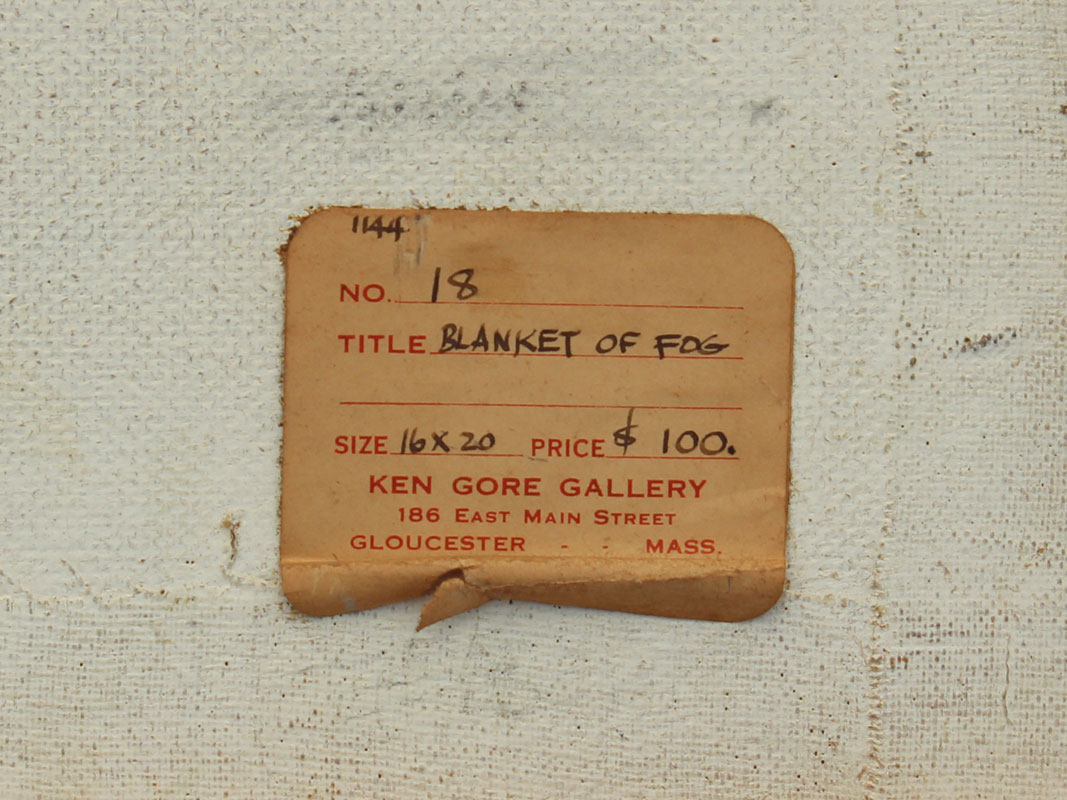 1144
NO. 18
TITLE BLANKET OF FOG
SIZE 16 X 20 PRICE $ 100.
KEN GORE GALLERY
186 EAST MAIN STREET
GLOUCESTER - - MASS.